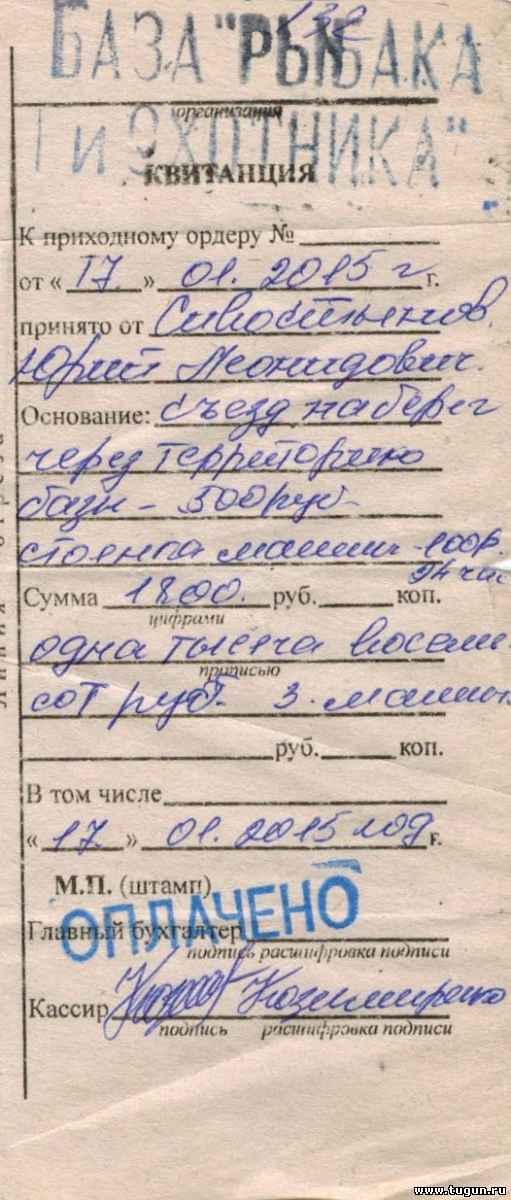 БАЗА "РЫБАКА
организация
и ОХОТНИКА"
КВИТАНЦИЯ
К приходному ордеру №
от « 17 » 01. 2015 г г.
принято от
Юрий Леонидович.
Основание: съезд на берег
через территорию
базы - 500руб
стоянка машин -100р.
24 час
Сумма 1800. руб. коп.
цифрами
одна тысяча восемь
прописью
сот руб. 3. машин
руб. коп.
В том числе
« 17. » 01. 2015 год г.
М.П. (штамп)
ОПЛАЧЕНО
Главный бухгалтер
подпись расшифровка подписи
Кассир
подпись расшифровка подписи
Линия отреза
www.tugun.ru